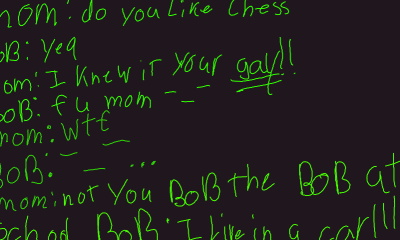 mom: do you Like Chess
BoB: yea
mom: I Knew it your gay!!
BoB: f u mom - - -
mom: Wtf
BoB: _ _ ...
mom: not You BoB the BoB at
school BoB: I live in a car!!!